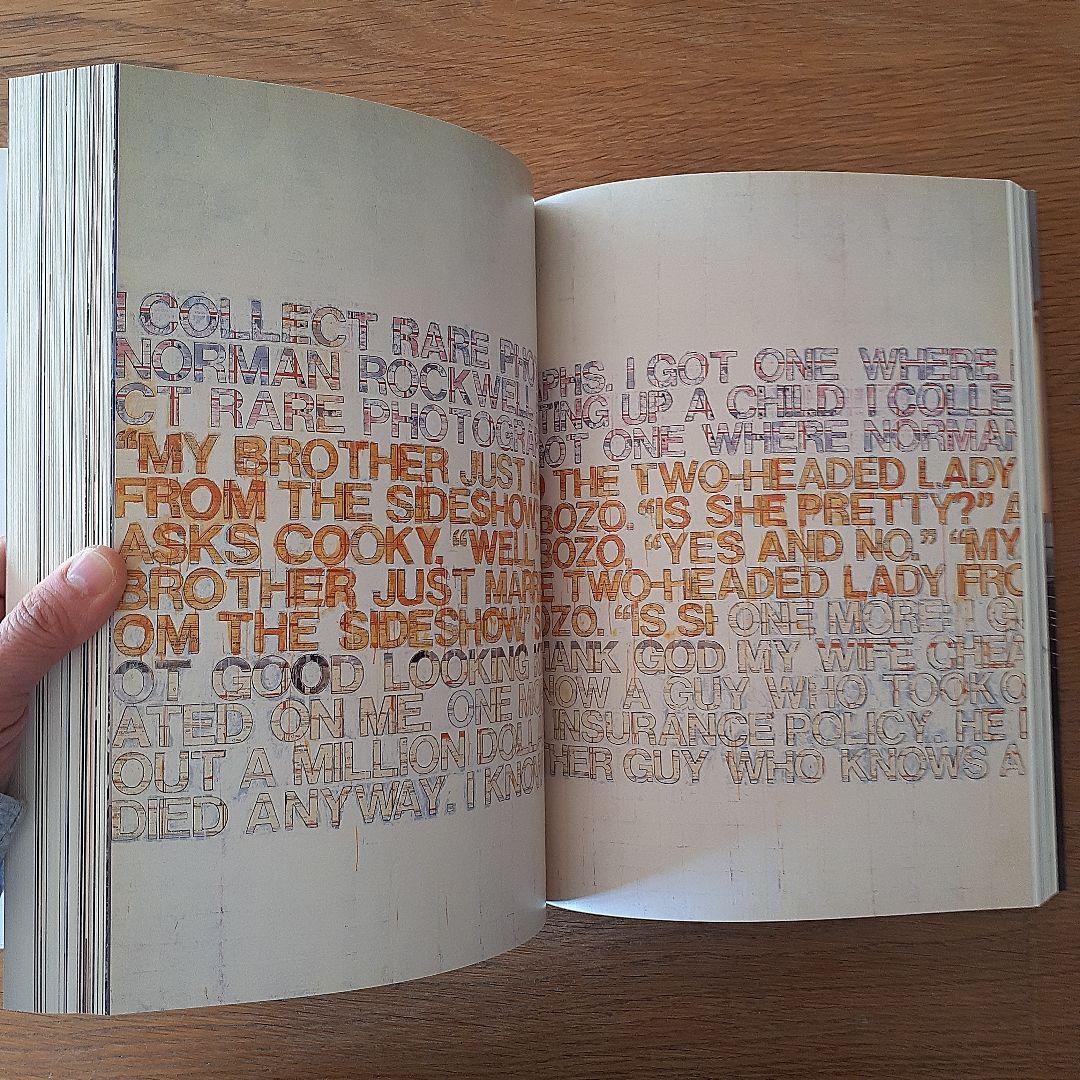 I COLLECT RARE PHO PHS. I GOT ONE WHERE
NORMAN ROCKWELL TING UP A CHILD I COLLE
CT RARE PHOTOGRA OT ONE WHERE NORMAN
“MY BROTHER JUST THE TWO-HEADED LADY
FROM THE SIDESHOW BOZO. “IS SHE PRETTY?” A
ASKS COOKY. “WELL BOZO, “YES AND NO.” “MY
BROTHER JUST MARR E TWO-HEADED LADY FRO
OM THE SIDESHOW.” OZO. “IS SH ONE MORE: I G
OT GOOD LOOKING HANK GOD MY WIFE CHEA
ATED ON ME. ONE M NOW A GUY WHO TOOK O
OUT A MILLION DOLL INSURANCE POLICY. HE
DIED ANYWAY. I KNOW THER GUY WHO KNOWS A